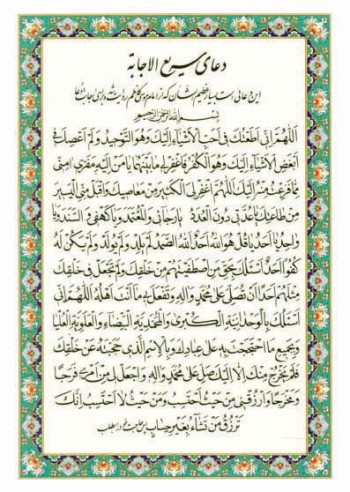 دعای سریع الاجابة
این دعائی است بسیار عظیم الشأن که از امام موسی کاظم روایت شده و برای حاجات
بسم الله الرحمن الرحیم
اَللّٰهُمَّ اِنّی اَطَعْتُكَ فی اَحَبِّ الْاَشْیاءِ اِلَیْكَ وَهُوَ التَّوْحیدُ وَلَمْ اَعْصِكَ فی
اَبْغَضِ الْاَشْیاءِ اِلَیْكَ وَهُوَ الْكُفْرُ فَاغْفِرْ لی ما بَیْنَهُما یا مَنْ اِلَیْهِ مَفَرّی امِنّی
مِمّا فَزِعْتُ مِنْهُ اِلَیْكَ اَللّٰهُمَّ اغْفِرْ لِیَ الْكَثیرَ مِنْ مَعاصیكَ وَاقْبَلْ مِنِّی الْیَسیرَ
مِنْ طاعَتِكَ یا عُدَّتی دُونَ الْعُدَدِ یا رَجائی وَالْمُعْتَمَدَ وَیا كَهْفی وَالسَّنَدَ وَیا
واحِدُ یا اَحَدُ یا قُلْ هُوَ اللّٰهُ اَحَدٌ اَللّٰهُ الصَّمَدُ لَمْ یَلِدْ وَلَمْ یُولَدْ وَلَمْ یَكُنْ لَهُ
كُفُواً اَحَدٌ اَسْئَلُكَ بِحَقِّ مَنِ اصْطَفَیْتَهُمْ مِنْ خَلْقِكَ وَلَمْ تَجْعَلْ فی خَلْقِكَ
مِثْلَهُمْ اَحَداً اَنْ تُصَلِّیَ عَلیٰ مُحَمَّدٍ وَالِهِ وَتَفْعَلَ بی ما اَنْتَ اَهْلُهُ اَللّٰهُمَّ اِنّی
اَسْئَلُكَ بِالْوَحْدانِیَّةِ الْكُبْریٰ وَالْمُحَمَّدِیَّةِ الْبَیْضاءِ وَالْعَلَوِیَّةِ الْعُلْیا
وَبِجَمیعِ مَا احْتَجَجْتَ بِهِ عَلیٰ عِبادِكَ وَبِالْاِسْمِ الَّذی حَجَبْتَهُ عَنْ خَلْقِكَ
فَلَمْ یَخْرُجْ مِنْكَ اِلّا اِلَیْكَ صَلِّ عَلیٰ مُحَمَّدٍ وَالِهِ وَاجْعَلْ لی مِنْ اَمْری فَرَجاً
وَمَخْرَجاً وَارْزُقْنی مِنْ حَیْثُ اَحْتَسِبُ وَمِنْ حَیْثُ لا اَحْتَسِبُ اِنَّكَ
تَرْزُقُ مَنْ تَشاءُ بِغَیْرِ حِسابٍ پس حاجت خود را بطلب